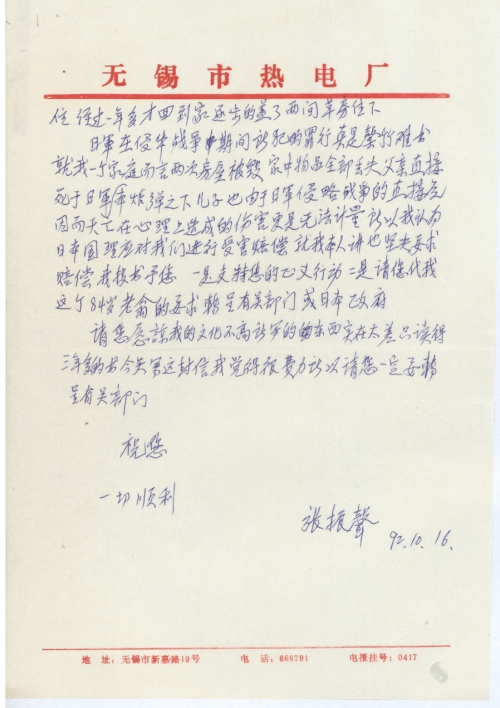 无锡市热电厂
住 经过一年多才回到家逐步的盖了两间草房住下
日軍在侵华战争中期间所犯的罪行真是罄竹难书
就我一个家庭而言两次房屋被毁 家中物品全部丢失父亲直接
死于日軍炸弹之下儿子也由于日军侵略战争的直接原
因而夭亡在心理上造成的伤害更是无法计量所以我认为
日本国理应对我们进行受害赔偿 就我本人讲也坚决要求
赔偿 我投书予您 一是支持您的正义行动 二是请您代我
这个84岁老翁的要求转呈有关部门或日本政府
请您原谅我的文化不高所写的东西实在太差只读得
三年多的书今天写这封信我觉得很费力所以请您一定要转
呈有关部门
祝您
一切顺利
张振聲
92.10.16.
地 址：无锡市新惠路19号 电 话：668791 电报挂号：0417